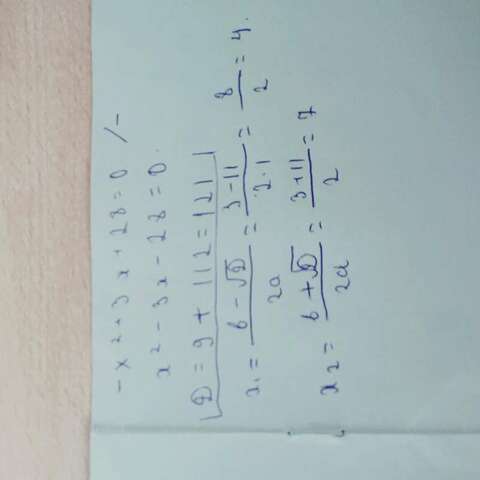 -x²+3x+28=0 /-
x²-3x-28=0.
D=9+112=121
x₁ = (b-√D)/2a = (3-11)/(2·1) = 8/2 = 4.
x₂ = (b+√D)/2a = (3+11)/2 = 7